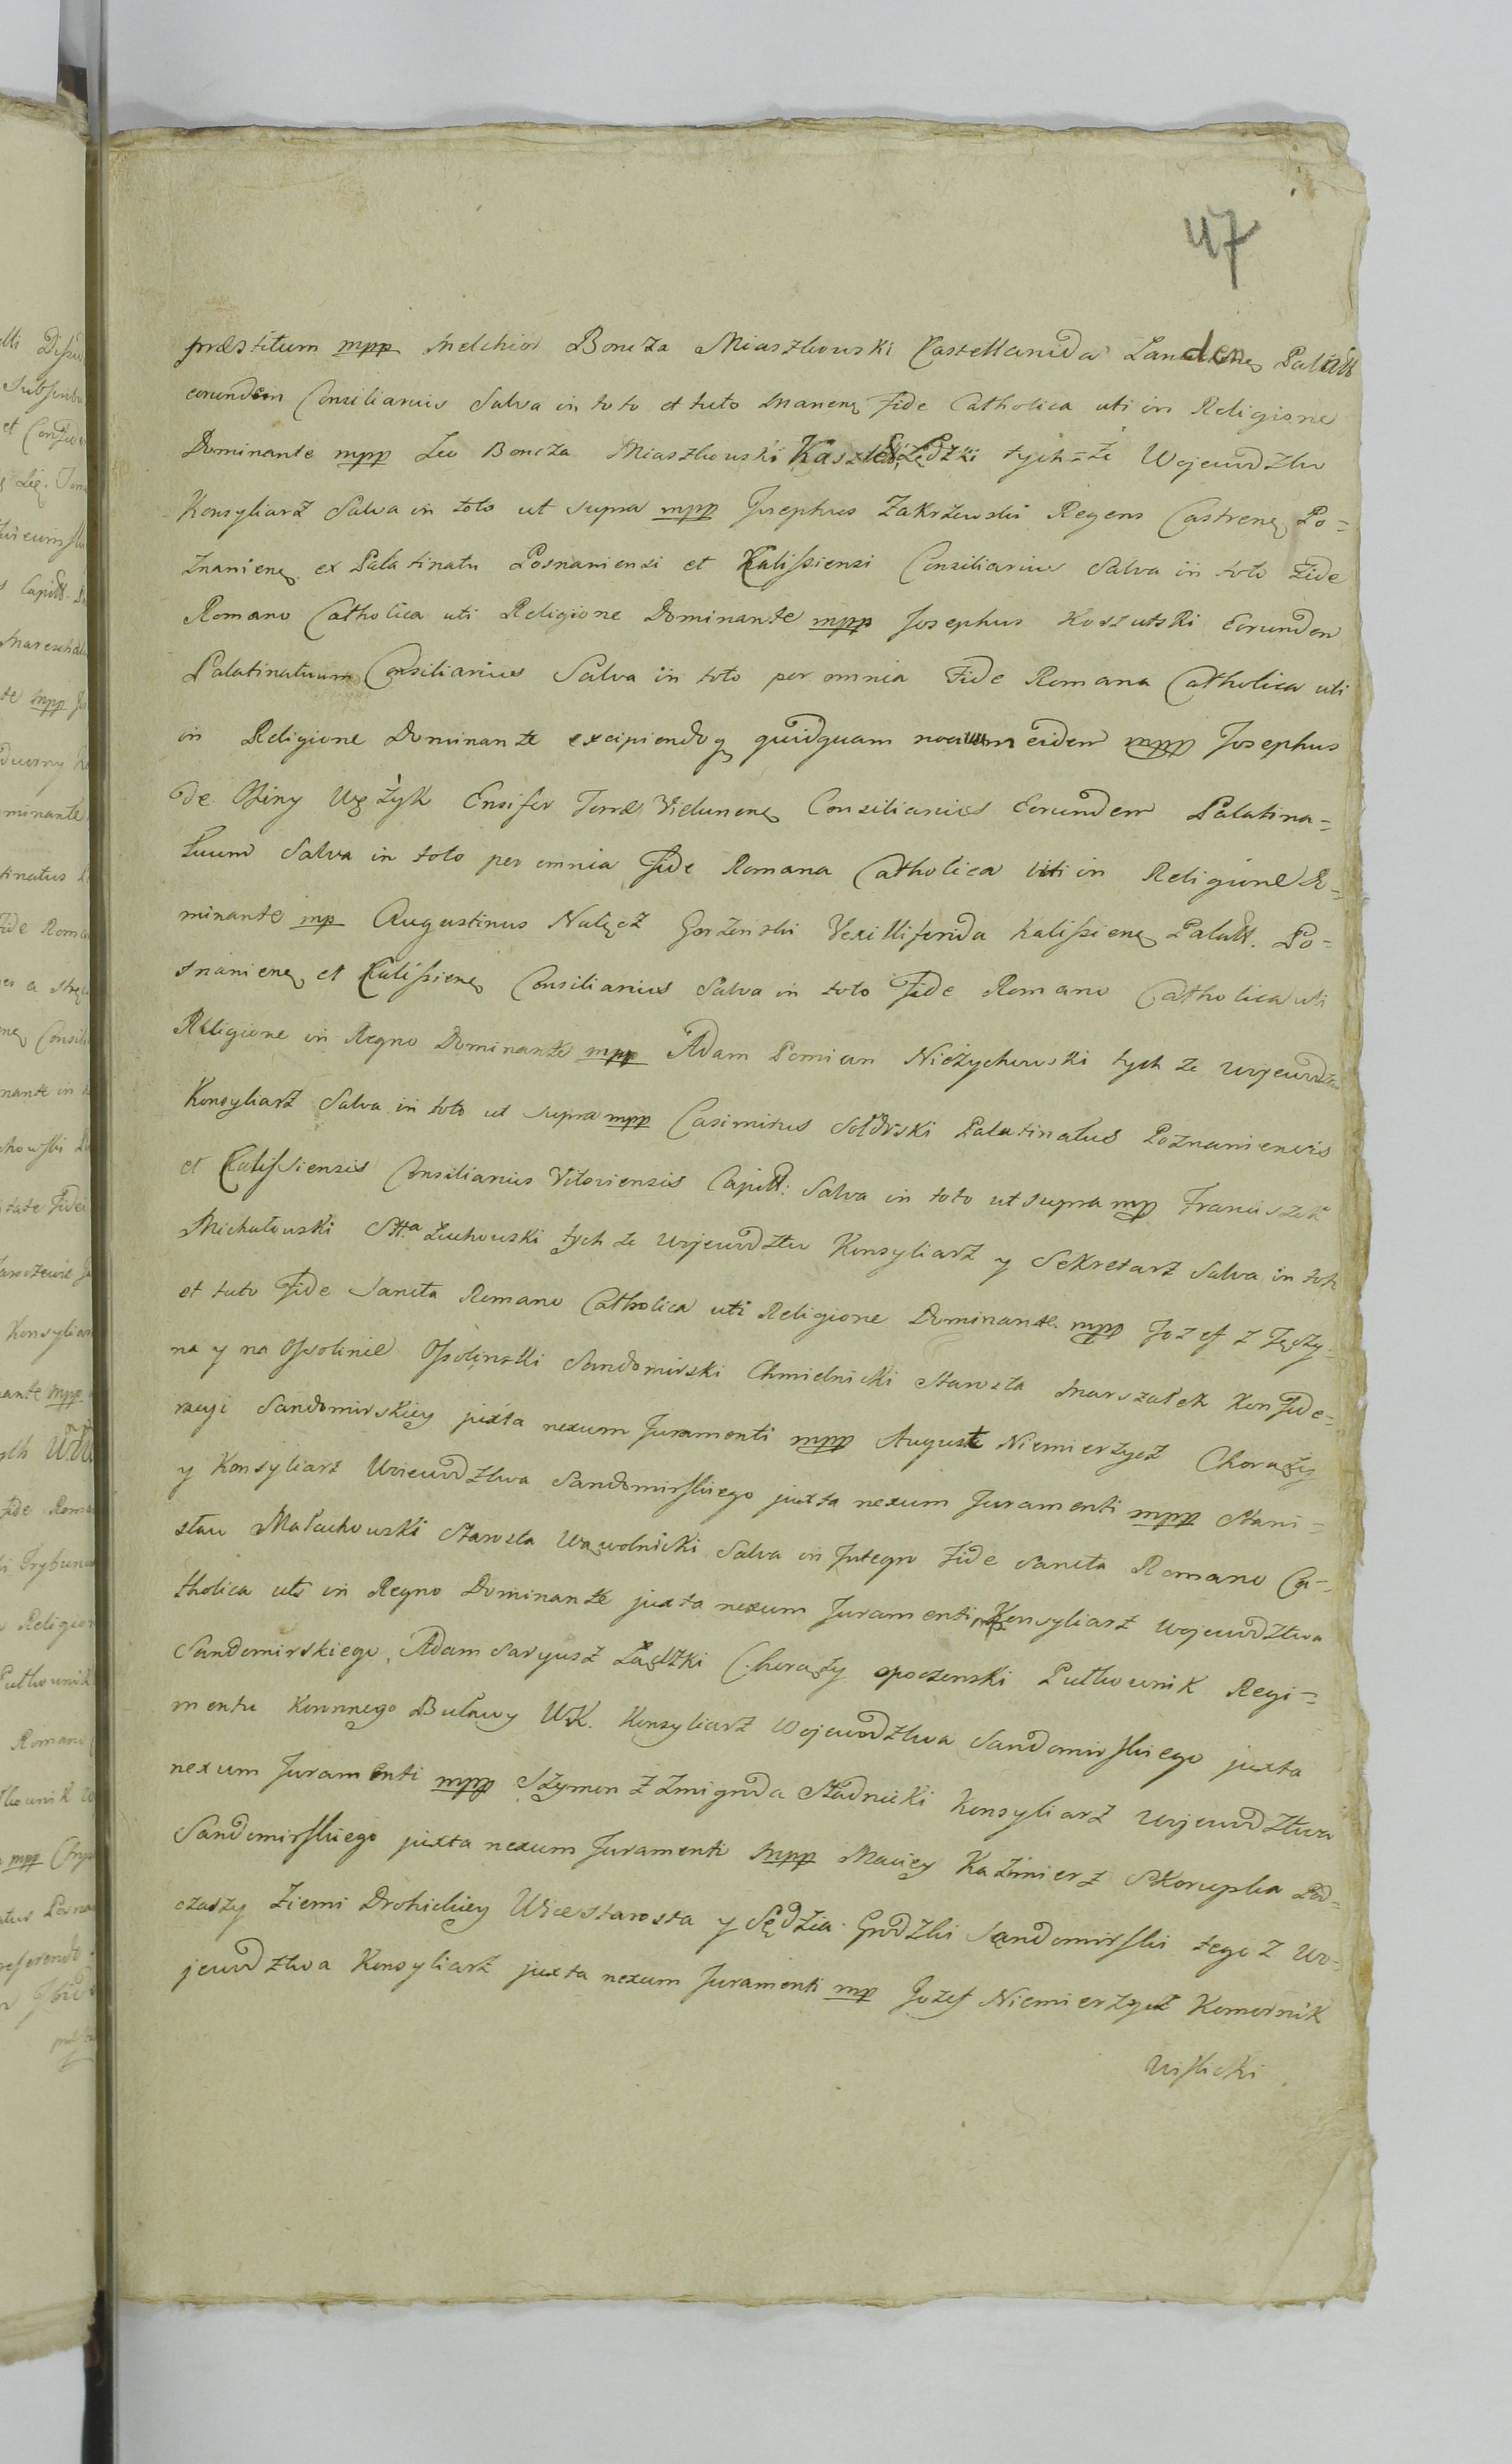 47
præstitum mpp Melchior Boncza Miaszkowski Castellanida Landen Palatt
eorundem Consiliarius Salva in toto et tuto manenę Fide Catholica uti in Religione
Dominante mpp Leo Boncza Miaszkowski Kasztel: Lędzki tych=że Wojewodztw
Konsyliarz Salva in toto ut supra mpp Josephus Zakrzewski Regens Castrenę Po=
znanienę ex Palatinatu Posnaniensi et Kalissiensi Consiliarius Salva in toto Fide
Romano Catholica uti Religione Dominante mpp Josephus Koszutski Eorundem
Palatinatuum Consiliarius Salva in toto per omnia Fide Romana Catholica uti
in Religione Dominante excipiendoq quidquam nocivum eidem mpp Josephus
de Osiny Węzyk Ensifer Terræ Vielunenę Consiliarius Eorundem Palatina=
tuum Salva in toto per omnia Fide Romana Catholica uti in Religione Do=
minante mp Augustinus Nałęcz Gorzenski Vexilliferida Kalissienę Palatt. Po=
snanienę et Calissienę Consiliarius Salva in toto Fide Romano Catholica uti
Religione in Regno Dominante mpp Adam Pomian Nieżychowski tych ze Wojewodztw
Konsyliarz Salva in toto ut supra mpp Casimirus Sołdrski Palatinatus Poznaniensis
et Calissiensis Consiliarius Viloviensis Capitt: Salva in toto ut supra mp Franciszek
Michałowski Stta Zuchowski tych ze Wojewodztw Konsyliarz y Sekretarz Salva in toto
et tuto Fide Sancta Romano Catholica uti Religione Dominante mpp Jozef z Tęczy=
na y na Ossolinie Ossolinski Sandomirski Chmielnicki Starosta Marszałek Konfede=
racyi Sandomirskiey juxta nexum Juramenti mpp August Niemierzycz Chorąży
y Konsyliarz Woiewodztwa Sandomirskiego juxta nexum Juramenti mpp Stani=
sław Małachowski Starosta Wąwolnicki Salva in Integro Fide Sancta Romano Ca=
tholica uti in Regno Dominante juxta nexum Juramenti Konsyliarz Wojewodztwa
Sandomirskiego, Adam Saryusz Łącki Chorąży opoczenski Pułkownik Regi=
mentu Konnego Buławy WK. Konsyliarz Wojewodztwa Sandomirskiego juxta
nexum Juramenti mpp Szymon z Zmigroda Stadnicki Konsyliarz Wojewodztwa
Sandomirskiego juxta nexum Juramenti mpp Maciey Kazimierz Skorupka Pod=
czaszy Ziemi Drohickiey Wice Starosta y Sędzia Grodzki Sandomirski tego z Wo=
jewodztwa Konsyliarz juxta nexum Juramenti mp Jozef Niemierzycz Komornik
Wislicki